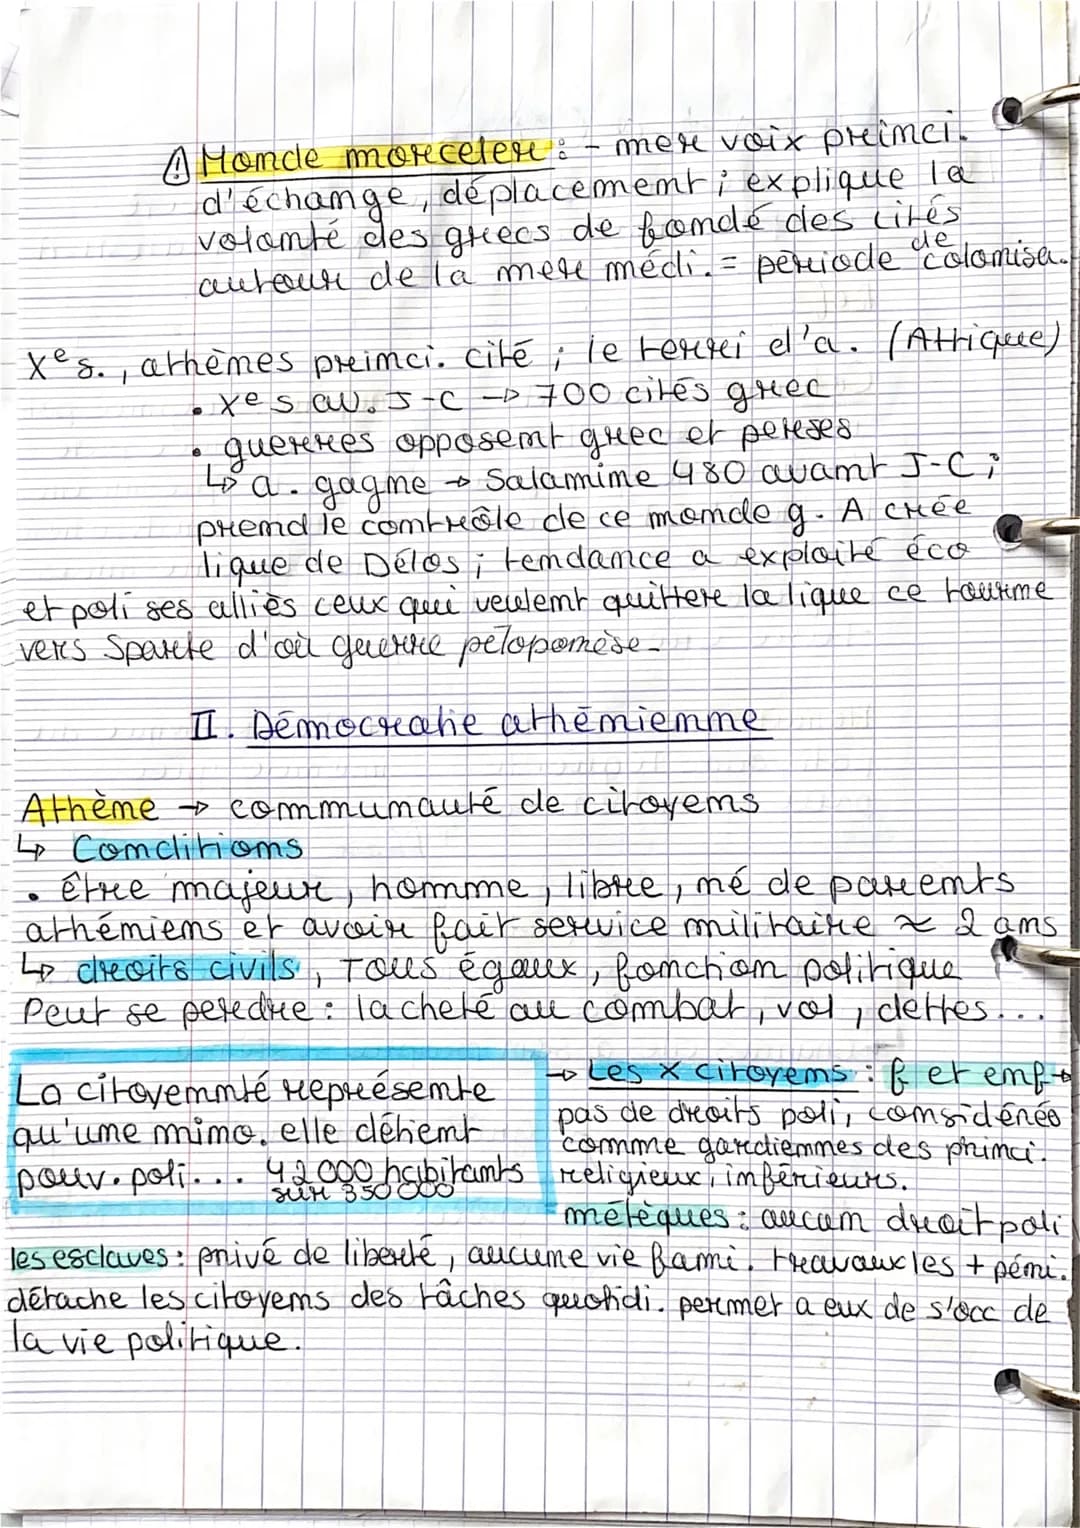 ⚠ Monde morceler : - mer voix princi.
d'échange, déplacement ; explique la
volonté des grecs de fondé des cités
autour de la mer médi. = période de colonisa.
Xe s., athènes princi. cité ; le terri d'a. (Attique)
• Xe s av. J-C → 700 cités grec
• guerres opposent grec et perses
↳ a. gagne → Salamine 480 avant J-C ;
prend le contrôle de ce monde g. A crée
ligue de Délos ; tendance a exploité éco
et poli ses alliès ceux qui veulent quitter la ligue ce tourne
vers Sparte d'où guerre péloponèse.
II. Démocratie athénienne
Athène → communauté de citoyens
↳ Conditions
• être majeur, homme, libre, né de parents
athéniens et avoir fait service militaire ≈ 2 ans
↳ droits civils, Tous égaux, fonction politique
Peut se perdre : la cheté au combat, vol, dettes...
La citoyenneté représente
qu'une mino. elle détient
pouv. poli... 42 000 habitants
sur 350 000
→ Les x citoyens : f et enf →
pas de droits poli, considérés
comme gardiennes des princi.
religieux, inférieurs.
métèques : aucun droit poli
les esclaves : privé de liberté, aucune vie fami. travaux les + péni.
détache les citoyens des tâches quotidi. permet a eux de s'occ de
la vie politique.